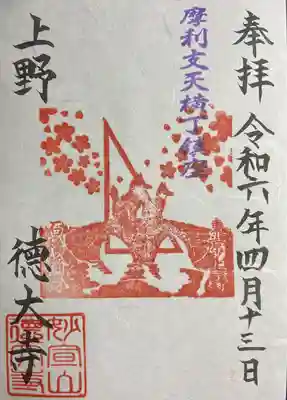 奉拝 令和六年四月十三日
摩利支天横丁
上野 徳大寺
妙宣山
徳大寺